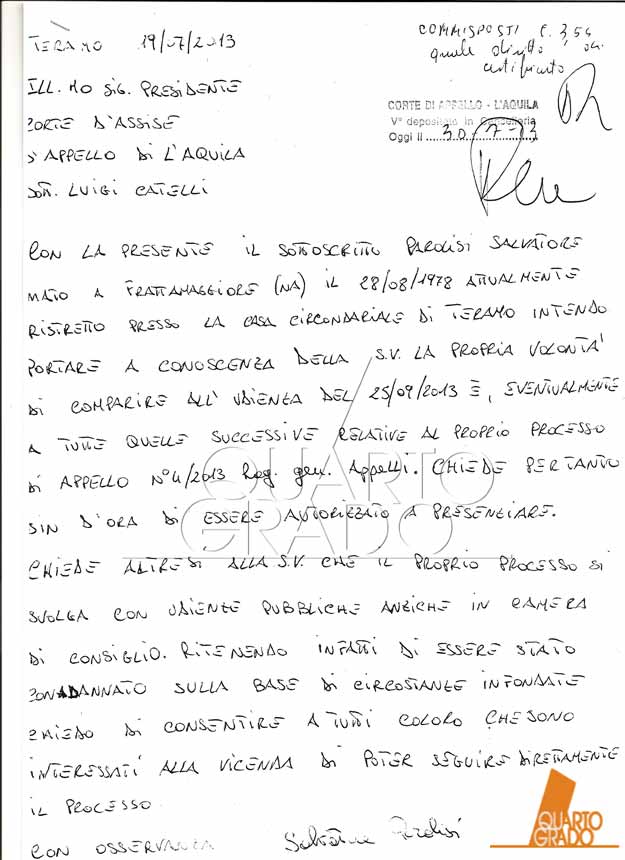 TERAMO 19/07/2013
COMMISPOSTI C. 354
quale diritto di
certificato
ILL.MO SIG. PRESIDENTE
CORTE D'ASSISE
D'APPELLO DI L'AQUILA
DOTT. LUIGI CATELLI
CORTE DI APPELLO - L'AQUILA
V° depositato in Cancelleria
Oggi il 30-7-13
CON LA PRESENTE IL SOTTOSCRITTO PAROLISI SALVATORE
NATO A FRATTAMAGGIORE (NA) IL 28/08/1978 ATTUALMENTE
RISTRETTO PRESSO LA CASA CIRCONDARIALE DI TERAMO INTENDO
PORTARE A CONOSCENZA DELLA S.V. LA PROPRIA VOLONTA'
DI COMPARIRE ALL'UDIENZA DEL 25/09/2013 E, EVENTUALMENTE
A TUTTE QUELLE SUCCESSIVE RELATIVE AL PROPRIO PROCESSO
DI APPELLO N°4/2013 Reg. gen. Appelli. CHIEDE PERTANTO
SIN D'ORA DI ESSERE AUTORIZZATO A PRESENZIARE.
CHIEDE ALTRESI ALLA S.V. CHE IL PROPRIO PROCESSO SI
SVOLGA CON UDIENZE PUBBLICHE ANZICHE IN CAMERA
DI CONSIGLIO. RITENENDO INFATTI DI ESSERE STATO
CONDANNATO SULLA BASE DI CIRCOSTANZE INFONDATE
CHIEDO DI CONSENTIRE A TUTTI COLORO CHE SONO
INTERESSATI ALLA VICENDA DI POTER SEGUIRE DIRETTAMENTE
IL PROCESSO
CON OSSERVANZA Salvatore Parolisi
QUARTO
GRADO
QUARTO
GRADO